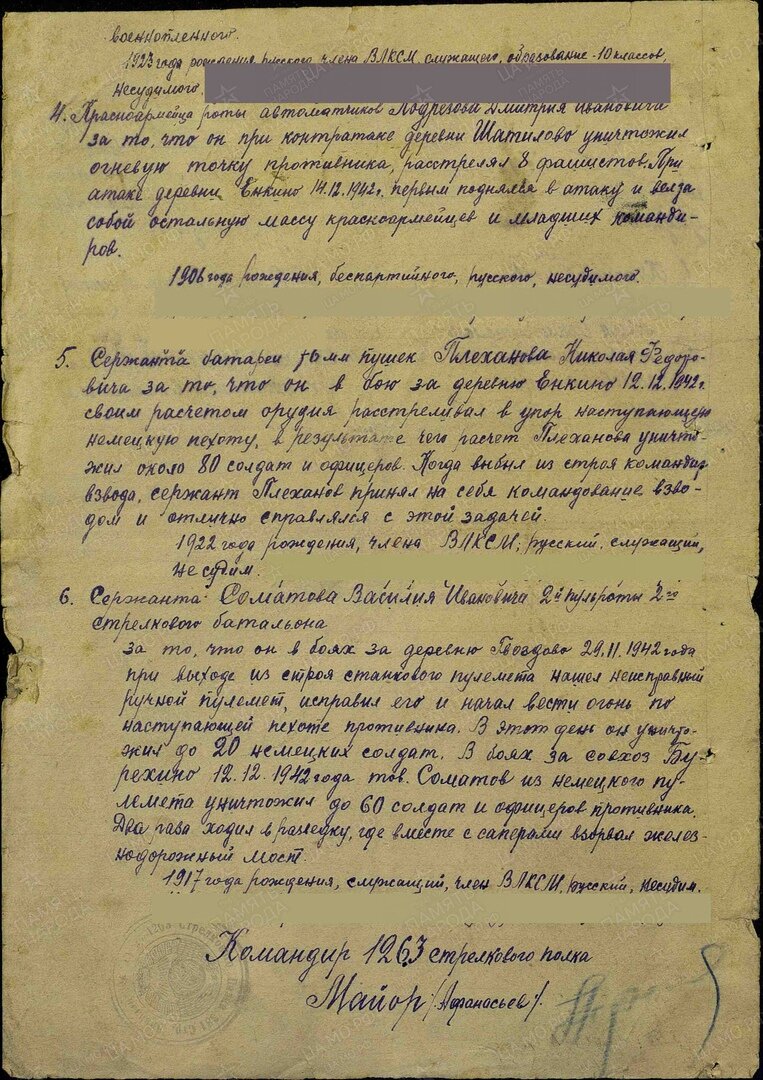 военнопленного.
1923 года рождения русского члена ВЛКСМ, служащего, образование - 10 классов,
несудимого.
4. Красноармейца роты автоматчиков Подрезова Дмитрия Ивановича
за то, что он при контратаке деревни Шатилово уничтожил
огневую точку противника, расстрелял 8 фашистов. При
атаке деревни Енкино 14.12.1942г. первым поднялся в атаку и вел за
собой остальную массу красноармейцев и младших команди-
ров.
1906 года рождения, беспартийного, русского, несудимого.
5. Сержанта батареи 76 мм пушек Плеханова Николая Федоро-
вича за то, что он в бою за деревню Енкино 12.12.1942г.
своим расчетом орудия расстреливал в упор наступающую
немецкую пехоту, в результате чего расчет Плеханова уничто-
жил около 80 солдат и офицеров. Когда выбыл из строя командир
взвода, сержант Плеханов принял на себя командование взво-
дом и отлично справлялся с этой задачей.
1922 года рождения, члена ВЛКСМ, русский, служащий,
несудим.
6. Сержанта Соматова Василия Ивановича 2й пульроты 2го
стрелкового батальона
за то, что он в боях за деревню Гвоздово 29.11.1942 года
при выходе из строя станкового пулемета нашел неисправный
ручной пулемет, исправил его и начал вести огонь по
наступающей пехоте противника. В этот день он уничто-
жил до 20 немецких солдат. В боях за совхоз Бу-
рехино 12.12.1942 года тов. Соматов из немецкого пу-
лемета уничтожил до 60 солдат и офицеров противника.
Два раза ходил в разведку, где вместе с саперами взорвал желез-
нодорожный мост.
1917 года рождения, служащий, член ВЛКСМ, русский, несудим.
Командир 1263 стрелкового полка
Майор /Афанасьев/.